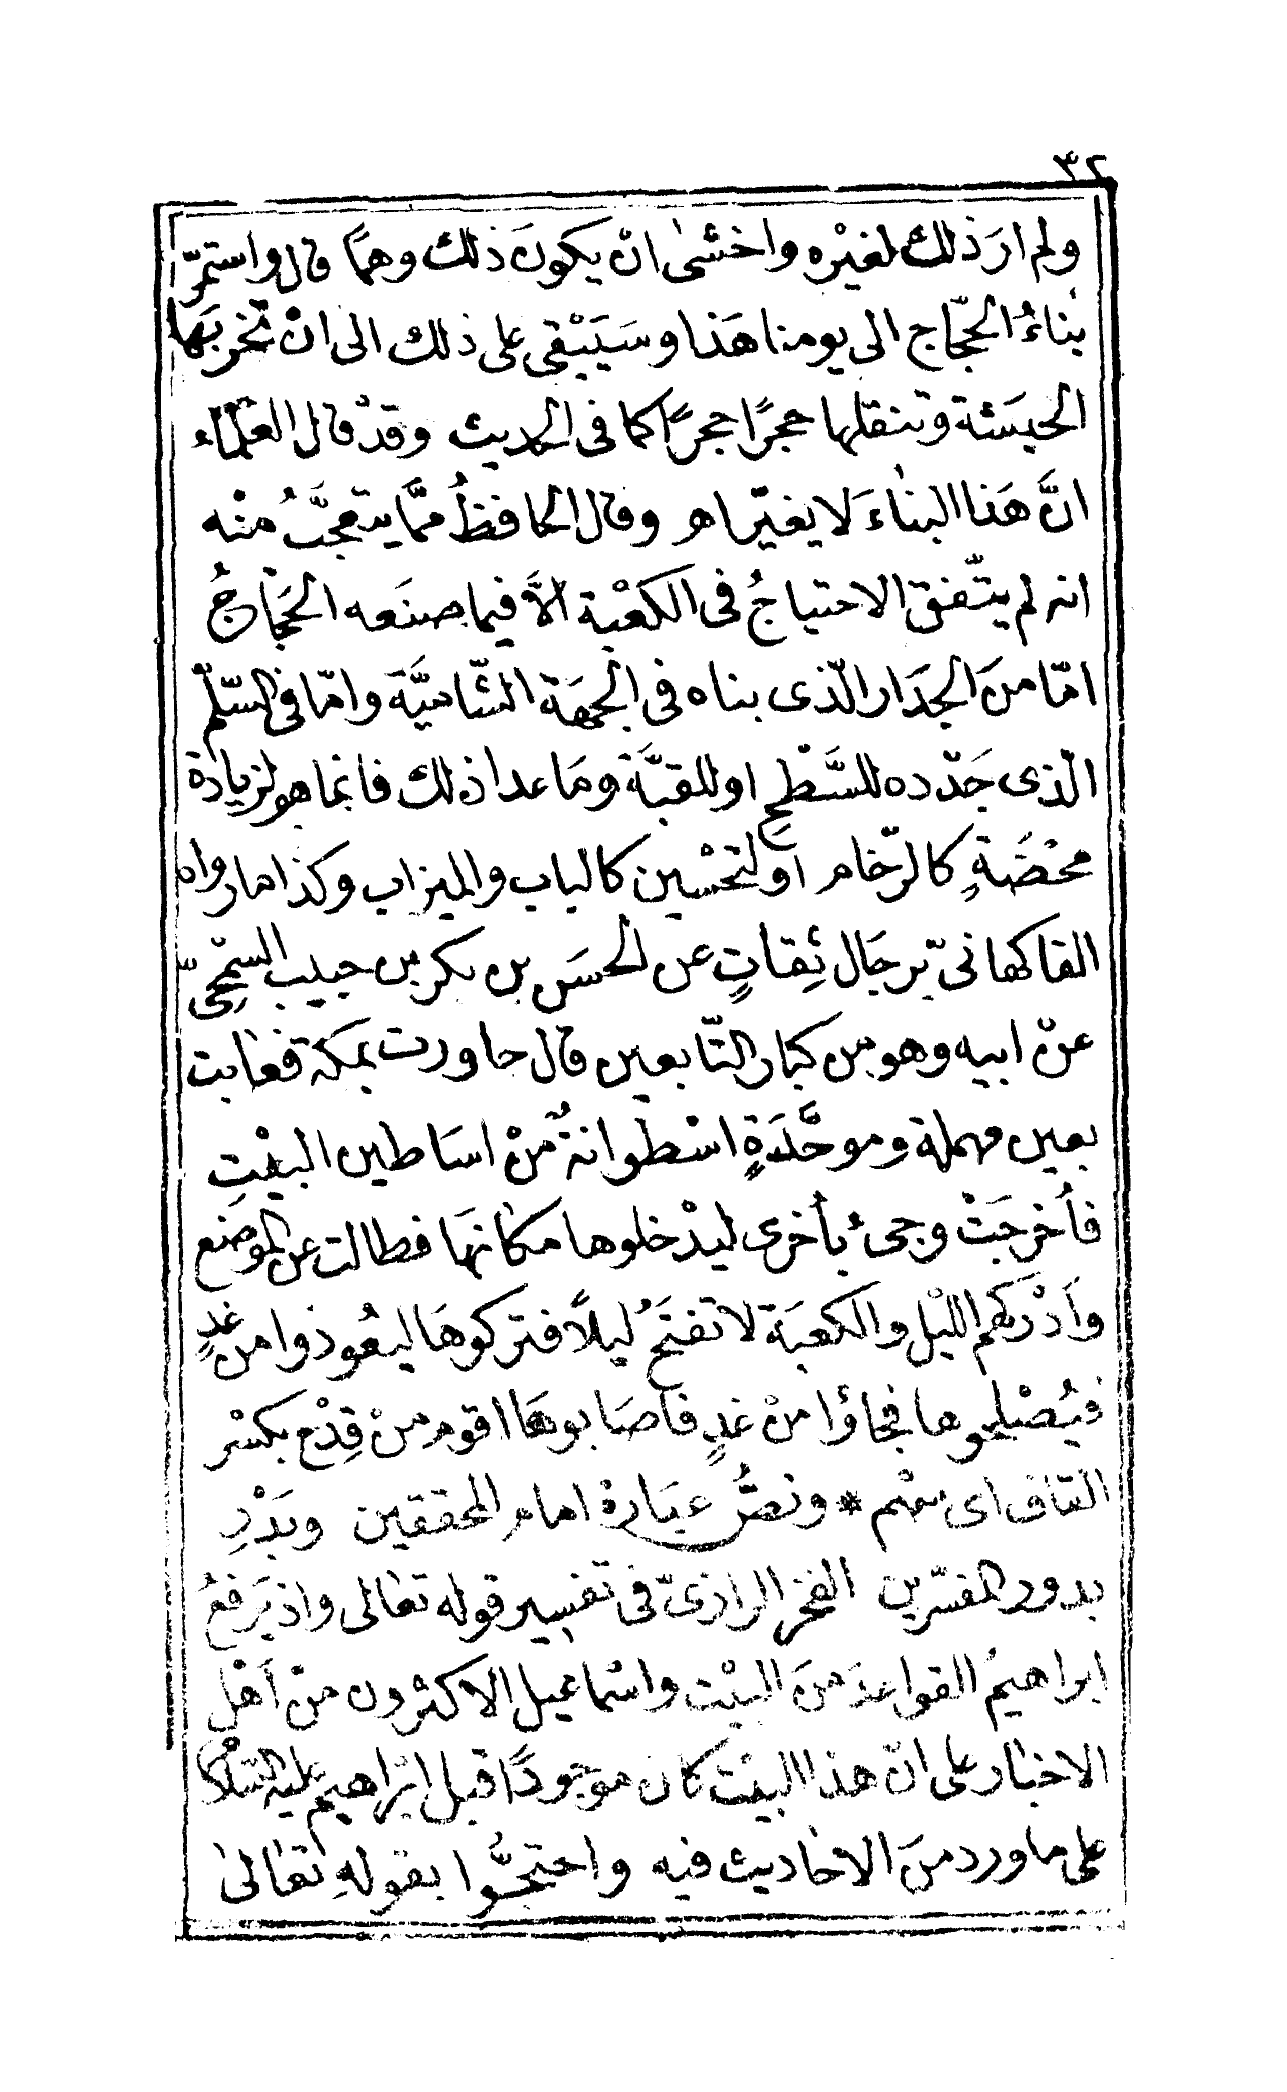 ٣٢
ولم ارَ ذلك لغيْره واخشىٰ انْ يكونَ ذلك وهمًا قال واستمرّ
بناءُ الحجّاج الى يومنا هَذا وسَيَبْقى على ذلك الى انْ تخربَها
الحبشَة وتنقلها حجرًا حجرًا كما فى الحديث وقدْ قال العلماء
انَّ هَذا البناءَ لا يغيّر اهـ وقال الحافظُ ممَّا يتعجَّبُ منْه
انه لم يتّفق الاحتياجُ فى الكعْبة الاَّ فيما صنَعه الحجّاجُ
امّا منَ الجدَار الّذى بناه فى الجهَة الشّاميَّة وامّا فى السّلّم
الّذى جَدّده للسَّطْحِ او للقبَّة ومَا عدا ذلك فانما هو لزيادة
محْضَةٍ كالرّخام او لتحْسين كالباب والميزاب وكذا ما رواه
الفاكهانىّ برجَال ثِقاتٍ عن الحسَن بن بكر بن حبيب السّهمىّ
عنْ ابيه وهو من كبار التّابعين قال جاورت بمكة فعابت
بعين مهملة وموحَّدَةٍ اسْطوانةٌ منْ اسَاطين البيْتِ
فأخرجَتْ وجىءَ بأخرى ليدْخلوها مكانهَا فطالت عن الموضع
وأدْركَهم الليْل والكعبَة لا تفتَحُ ليلاً فتركوهَا ليعُودُوا من غدٍ
فيُصْلحوها فجاؤا منْ غدٍ فاصَابوهَا اقوم منْ قِدْحٍ بكسْر
القاف اى سهْم * ونصُّ عبَارة امام المحققين وبَدْرِ
بدور المفسّرين الفخر الرازىّ فى تفسير قوله تعالى واذ يَرفعُ
ابراهيمُ القواعدَ منَ البيْت واسْماعيل الاكثرون منْ اَهْل
الاخبار على انّ هذا البيْت كان موجودًا قبل ابْراهيم عليه السّلام
على ما ورد منَ الاحاديث فيه واحتجُّوا بقولهِ تعالىٰ